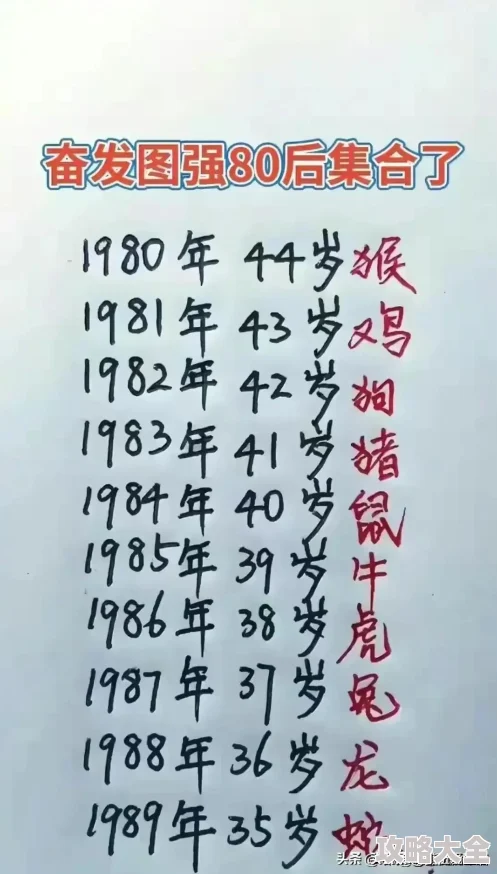 奋发图强80后集合了
1980年 44岁 猴
1981年 43岁 鸡
1982年 42岁 狗
1983年 41岁 猪
1984年 40岁 鼠
1985年 39岁 牛
1986年 38岁 虎
1987年 37岁 兔
1988年 36岁 龙
1989年 35岁 蛇
攻略大全
头条